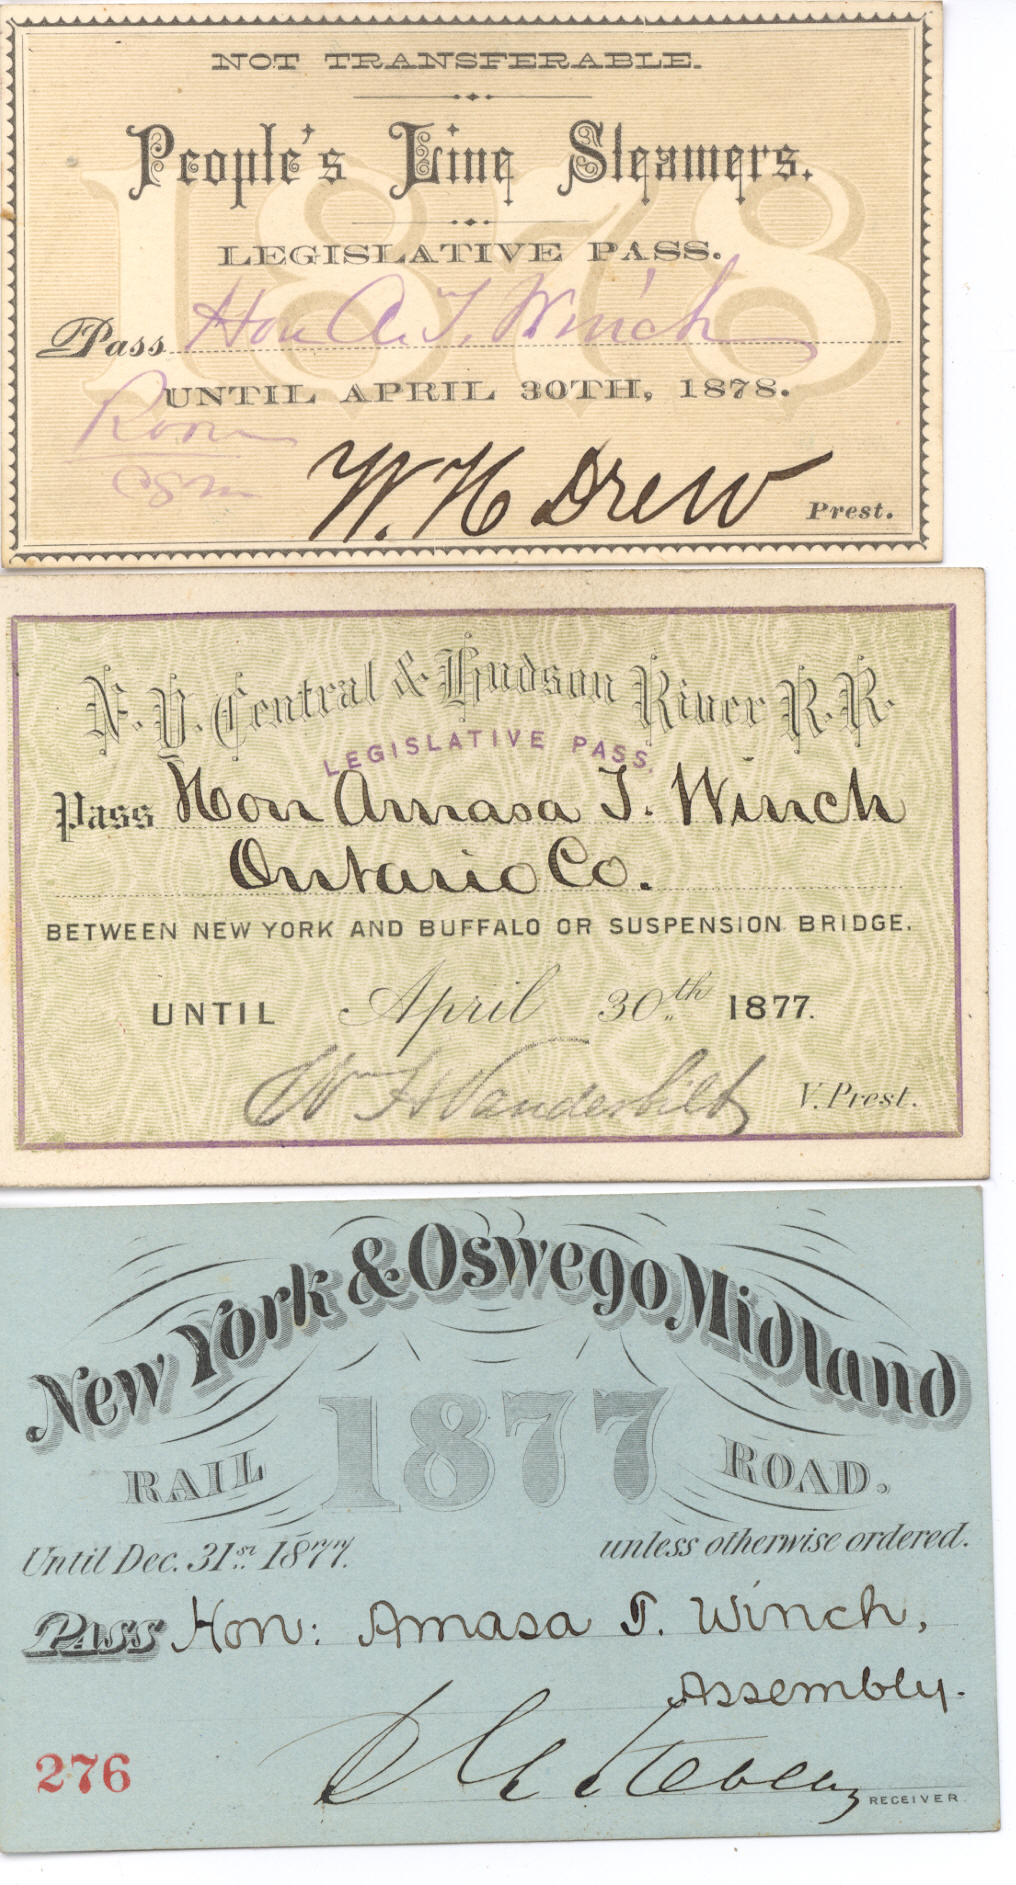 NOT TRANSFERABLE.
1878
People's Line Steamers.
LEGISLATIVE PASS.
Pass Hon A. T. Winch
UNTIL APRIL 30TH, 1878.
Room
W. H Drew Prest.
N. Y. Central & Hudson River R. R.
LEGISLATIVE PASS.
Pass Hon Amasa T. Winch
Ontario Co.
BETWEEN NEW YORK AND BUFFALO OR SUSPENSION BRIDGE.
UNTIL April 30th 1877.
W H Vanderbilt V. Prest.
New York & Oswego Midland
RAIL 1877 ROAD.
Until Dec. 31st 1877. unless otherwise ordered.
PASS Hon: Amasa T. Winch,
Assembly.
276
RECEIVER.